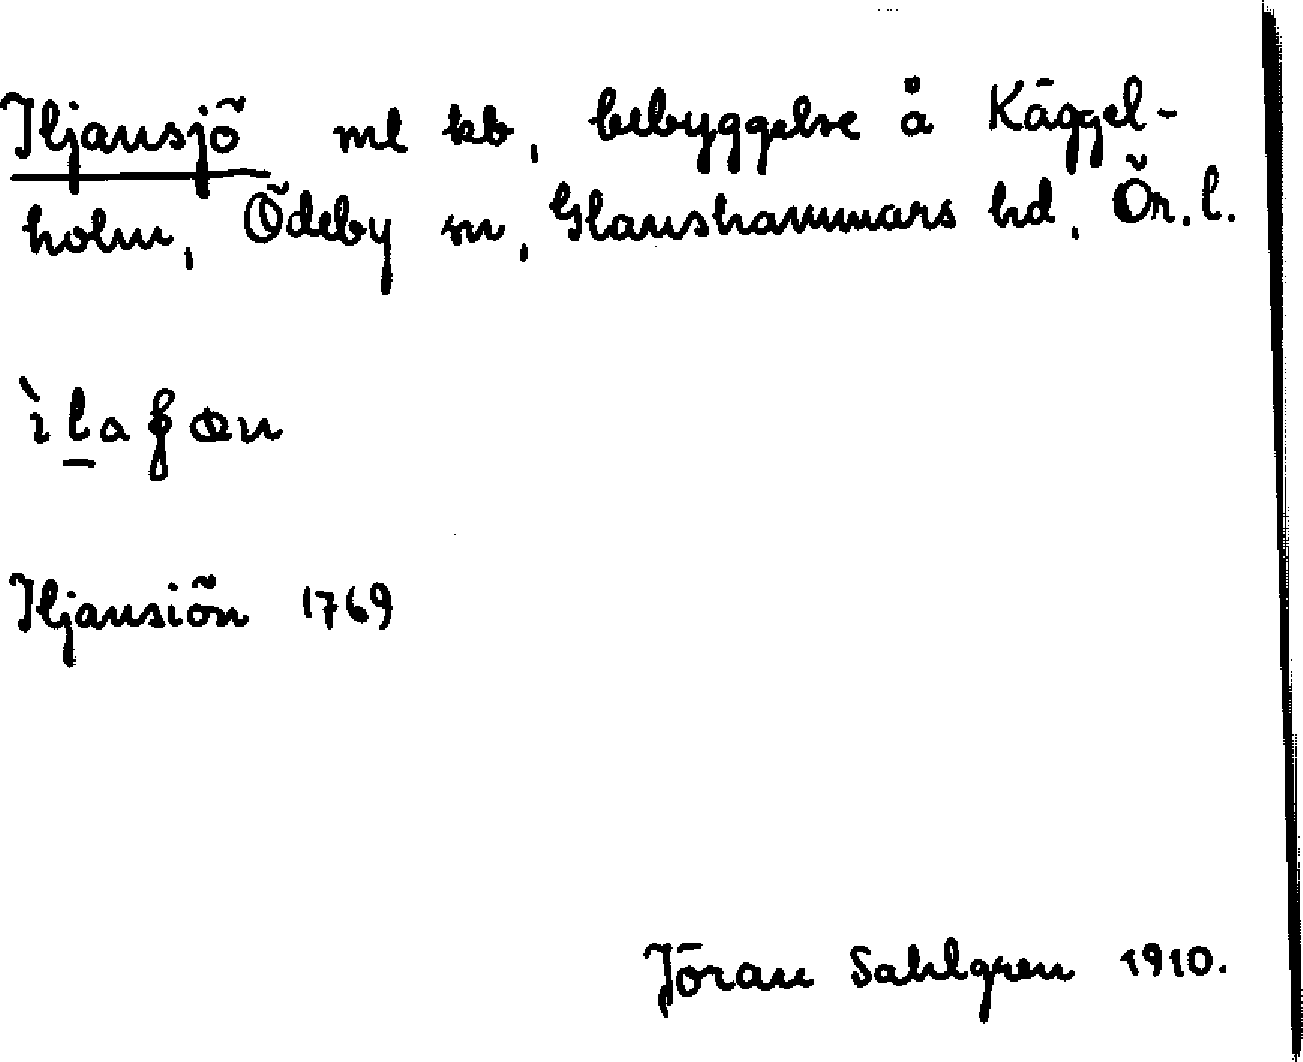 Iljansjö ml kb, bebyggelse å Käggel-
holm, Ödeby sn, Glanshammars hd, Ör. l.
Iljansiön 1769
Jöran Sahlgren 1910.